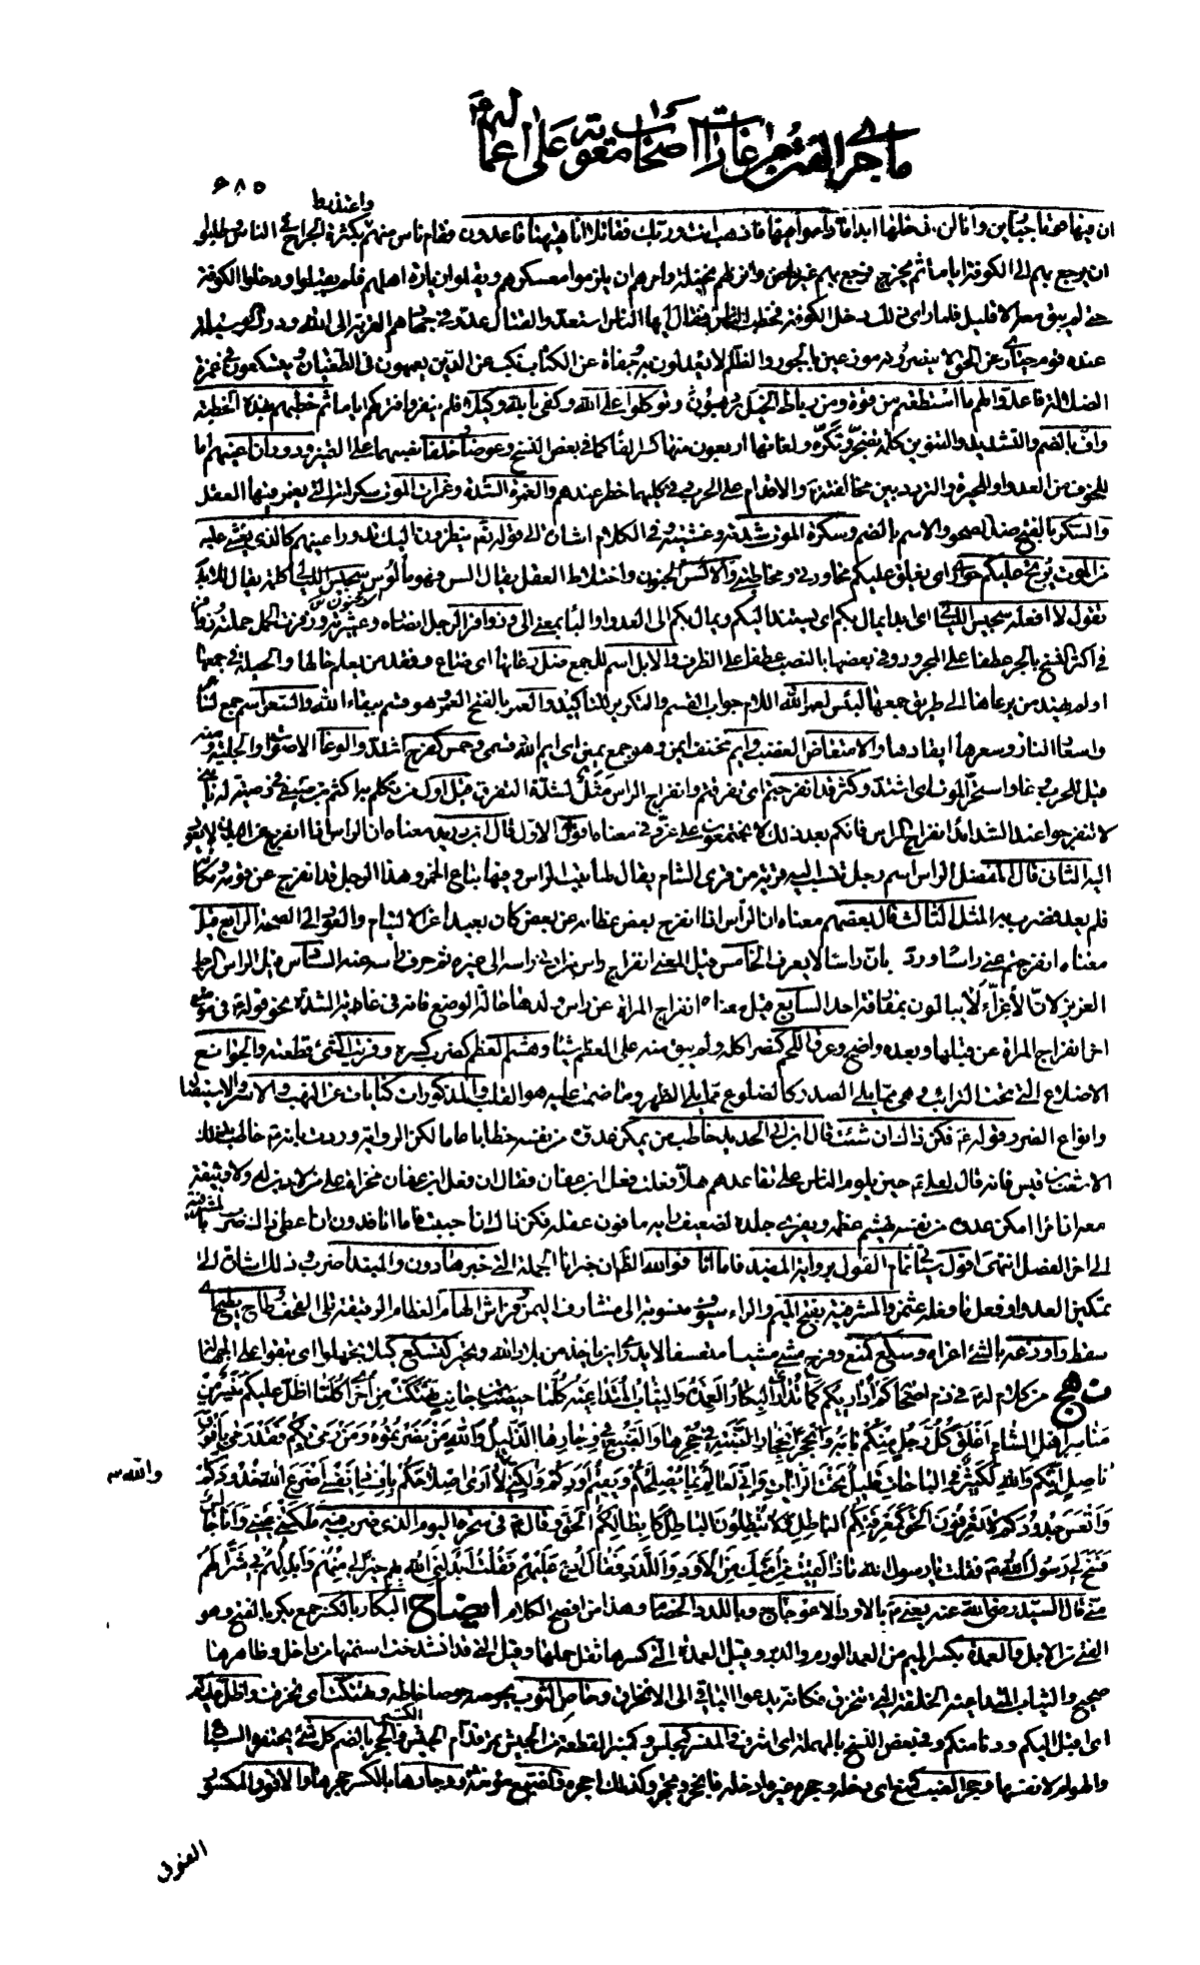 ما جرى من الفتن من غارات أصحاب معوية على أعماله ع
۶۸۵
واعتذر
ان فيها قوما جبارين وانا لن ندخلها ابدا ماداموا فيها فاذهب انت وربك فقاتلا انا هيهنا قاعدون فقام ناس منهم بكثرة الجراح في الناس وطلبوا
ان يرجع بهم الى الكوفة اياما ثم يخرج فرجع بهم غير راض وانزلهم نخيلة وامرهم ان يلزموا معسكرهم ويقلوا زيارة اهلهم فلم يقبلوا ودخلوا الكوفة
حتى لم يبق معه الا قليل فلما راى ذلك دخل الكوفة فخطب الناس فقال ايها الناس استعدوا لقتال عدو في جهادهم القربة الى الله ودرك الوسيلة
عنده قوم حيارى عن الحق لا يبصرونه موزعين بالجور والظلم لا يعدلون به جفاة عن الكتاب نكب عن الدين يعمهون في الطغيان ويتسكعون في غمرة
الضلالة فاعدوا لهم ما استطعتم من قوة ومن رباط الخيل وتوكلوا على الله وكفى بالله وكيلا فلم ينفروا فتركهم اياما ثم خطبهم بهذه الخطبة
واف بالضم والتشديد والتنوين كلمة تضجر وتكره ولغاتها اربعون منها كسر الفاء كما في بعض النسخ وعوضا وخلفا نصبهما على التميز ودوران اعينهم اما
للخوف من العدو او للحيرة والتردد بين مخالفته ع والاقدام على الحرب وفي كليهما خطر عندهم والغمرة الشدة وغمرات الموت سكراته التي يغمر فيها العقل
والسكر بالفتح ضد الصحو والاسم بالضم وسكرة الموت شدته وغشيته وفي الكلام اشارة الى قوله تعم ينظرون اليك تدور اعينهم كالذي يغشى عليه
من الموت يرتج عليكم حواري اى يغلق عليكم محاورتي ومخاطبتي والالس الجنون واختلاط العقل يقال الس فهو مألوس سجيس الليالي كلمة يقال للابد
تقول لا افعله سجيس الليالي اى ابدا يمال بكم اى يستند اليكم ويمال بكم الى العدو او الباء بمعنى الى وزوافر الرجل انصاره وعشيرته
في اكثر النسخ بالجر عطفا على المجرور وفي بعضها بالنصب عطفا على الظرف والابل اسم للجمع ضل رعاتها اى ضاع وفقد من يعلم حالها والحيلة في جمعها
او لم يهتد من يرعاها الى طريق جمعها لبئس لعمر الله اللام جواب القسم والتكرير للتاكيد والعمر بالفتح العمر وهو قسم ببقاء الله والسعر اسم جمع
واسعار النار وسعرها ايقادها والامتعاض الغضب وايم مخفف ايمن وهو جمع يمين اى ايم الله قسمي وحمس كفرح اشتد والوغا الاصوات والجلبة ومنه
قيل للحرب وغا واستحر الموت اى اشتد وكثر قد انفرجتم اى تفرقتم وانفراج الراس مثل لشدة التفرق قيل اول من تكلم به اكثم بن صيفي في وصية له
لا تنفرجوا عند الشدائد انفراج الراس فانكم بعد ذلك لا تجتمعون على عز وفي معناه اقوال الاول قال ابن دريد معناه ان الراس اذا انفرج عن البدن لا يعود
اليه الثاني قال المفضل الراس اسم رجل تنسب اليه قرية من قرى الشام يقال لها بيت الراس وفيها يباع الخمر وهذا الرجل قد انفرج عن قومه ومكانه
فلم يعد فضرب به المثل الثالث قال بعضهم معناه ان الراس اذا انفرج بعض عظامه عن بعض كان بعيدا عن الالتيام والعود الى الصحة الرابع قيل
معناه انفرجتم عني راسا وردّ بان راسا لا يعرف الخامس قيل المعنى انفراج راس من ادنى راسه الى غيره ثم حرف راسه عنه السادس قيل الراس الرجل
العزيز لان الاعزاء لا يبالون بمفارقة احد السابع قيل معناه انفراج المراة عن راس ولدها حالة الوضع فانه في غاية الشدة نحو قوله ع في موضع
اخر انفراج المراة عن قبلها وبعده واضح وعرق اللحم كنصر اكله ولم يبق منه على العظم شيئا وهشم العظم كضرب كسره وفريت الشئ قطعته والجوانح
الاضلاع التي تحت الترائب وهي مما يلي الصدر كالضلوع مما يلي الظهر وما ضمت عليه هو القلب والمذكورات كنايات عن النهب والاسر والاستيصال
وانواع الضرر وقوله ع فكن ذاك ان شئت قال ابن ابي الحديد خاطب من يمكن عدوه من نفسه خطابا عاما لكن الرواية وردت بانه ع خاطب بذلك
الاشعث بن قيس فانه قال لعلي ع حين يلوم الناس على تقاعدهم هلا فعلت فعل ابن عفان فقال ان فعل ابن عفان مخزاة على من لا دين له ولا وثيقة
معه ان امرا امكن عدوه من نفسه يهشم عظمه ويفري جلده لضعيف رايه مافون عقله فكن ذاك ان احببت فاما انا فدون ان اعطي ذاك ضرب بالمشرفية
الى اخر الفصل انتهى اقول سياتي تمام القول برواية المفيد فاما انا فوالله الظاهر ان خبر انا الجملة التي خبرها دون والمبتدا ضرب وذلك اشارة الى
تمكين العدو او فعل ما فعله عثمن والمشرفية بفتح الميم والراء سيوف منسوبة الى مشارف اليمن وفراش الهام العظام الرقيقة تلي القحف وطاح يطيح
سقط واوزعه بالشئ اغراه وسكع كمنع وفرح مشى مشيا متعسفا لا يدري اين ياخذ من بلاد الله وتحير كتسكع
نهج من كلام له ع في ذم اصحابه كم اداريكم كما تدارى البكار العمدة والثياب المتداعية كلما حيصت من جانب تهتكت من اخر اكلما اظل عليكم منسر من
مناسر اهل الشام اغلق كل رجل منكم بابه وانجحر انجحار الضبة في جحرها والضبع في وجارها الذليل والله من نصرتموه ومن رمى بكم فقد رمى بافوق
ناصل انكم والله لكثير في الباحات قليل تحت الرايات واني لعالم بما يصلحكم ويقيم اودكم ولكني لا ارى اصلاحكم بافساد نفسي اضرع الله خدودكم
والله
واتعس جدودكم لا تعرفون الحق كمعرفتكم الباطل ولا تبطلون الباطل كابطالكم الحق وقال ع في سحرة اليوم الذي ضرب فيه ملكتني عيني وانا جالس
فسنح لي رسول الله ص فقلت يا رسول الله ماذا لقيت من امتك من الاود واللدد فقال ادع عليهم فقلت ابدلني الله بهم خيرا لي منهم وابدلهم بي شرا لهم
مني قال السيد رضي الله عنه يعني ع بالاود الاعوجاج وباللدد الخصام وهذا من افصح الكلام ايضاح البكار بالكسر جمع بكر بالفتح وهو
الفتى من الابل والعمدة بكسر الميم من العمد الورم والدبر وقيل العمدة التي كسرها ثقل حملها وقيل التي قد انشدخت اسنمتها من داخل وظاهرها
صحيح والثياب المتداعية الخلقة التي تنخرق فكانه يدعو الباقي الى الانخراق وحاص الثوب يحوصه حوصا خاطه وتهتكت اى تخرقت واظل عليكم
اى اقبل اليكم ودنا منكم وفي بعض النسخ بالمهملة اى اشرف والمنسر كمجلس وكمنبر القطعة من الجيش تمر قدام الجيش الكثير والجحر بالضم كل شئ يحتفره السباع
والهوام لانفسها وجحر الضب كمنع اى دخله وجحره غيره ادخله فانجحر وتجحر وكذلك اجحره والضبع مؤنثة ووجارها بالكسر جحرها والافوق المكسور
الفوق